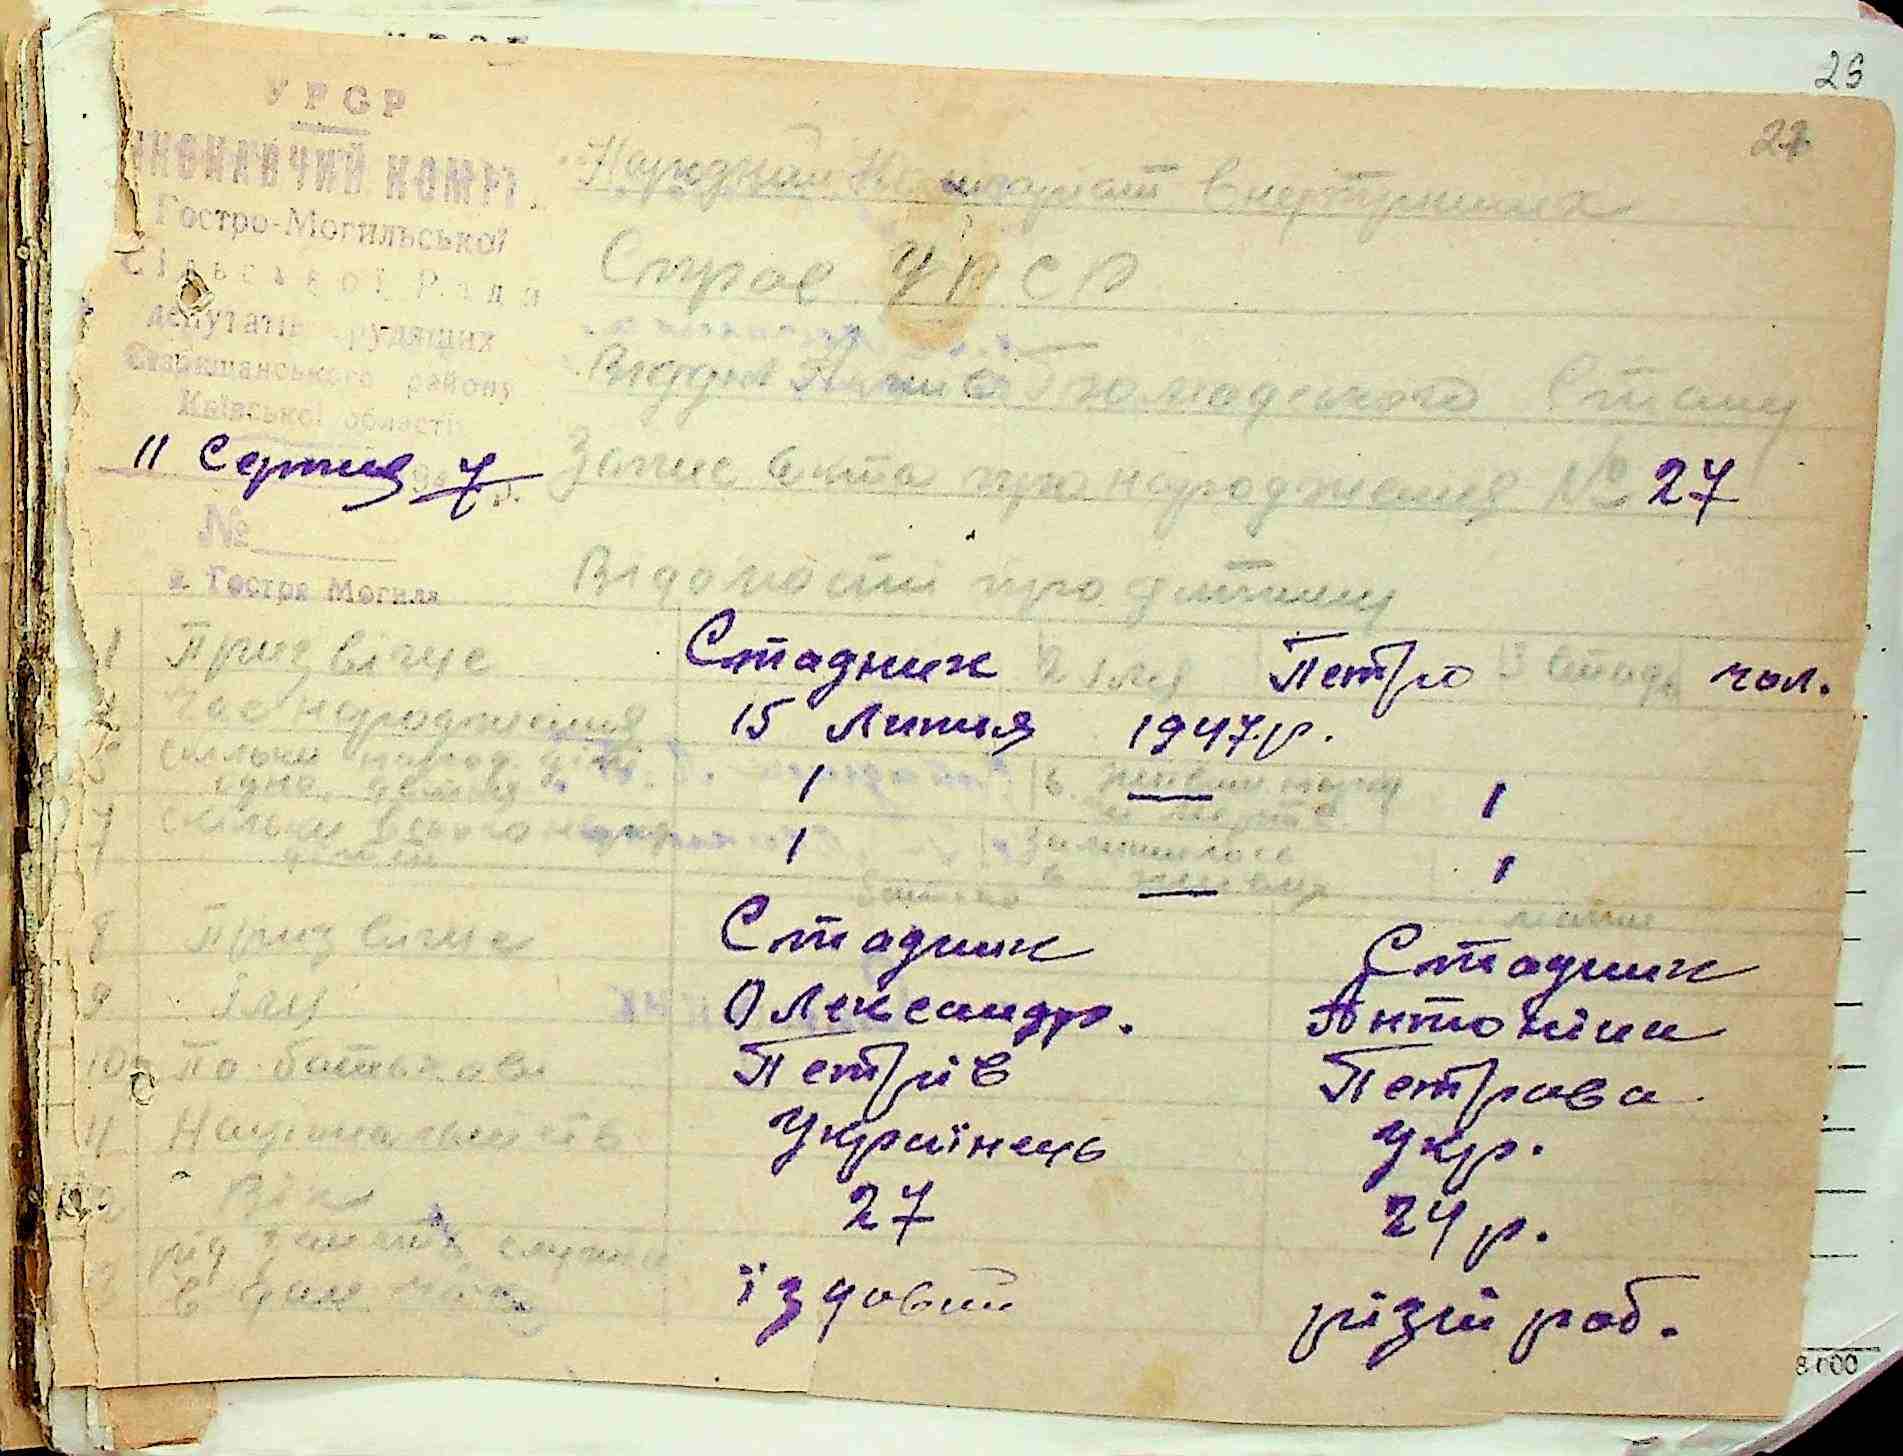 26
27
УРСР
Гостро-Могильської
Сільської Ради
депутатів трудящих
Ставищанського району
Київської області
11 Серпня 7
№
с. Гостра Могила
Народний Комісаріат Внутрішніх
Справ УРСР
Відділ Актів Громадського Стану
Запис Акта про народження № 27
Відомості про дитину
1 Призвіще Стадник 2 Імя Петро 3 Стать чол.
4 Час народження 15 Липня 1947 р.
5 Скільки народ. дітей 1 6 1
7 Скільки всього 1 1
батько мати
8 Призвіще Стадник Стадник
9 Імя Олександр. Антоніна
10 По батькові Петрів Петрова
11 Національність Українець Укр.
12 Вік 27 24 р.
рід занять служби
їздовий різні роб.
8100